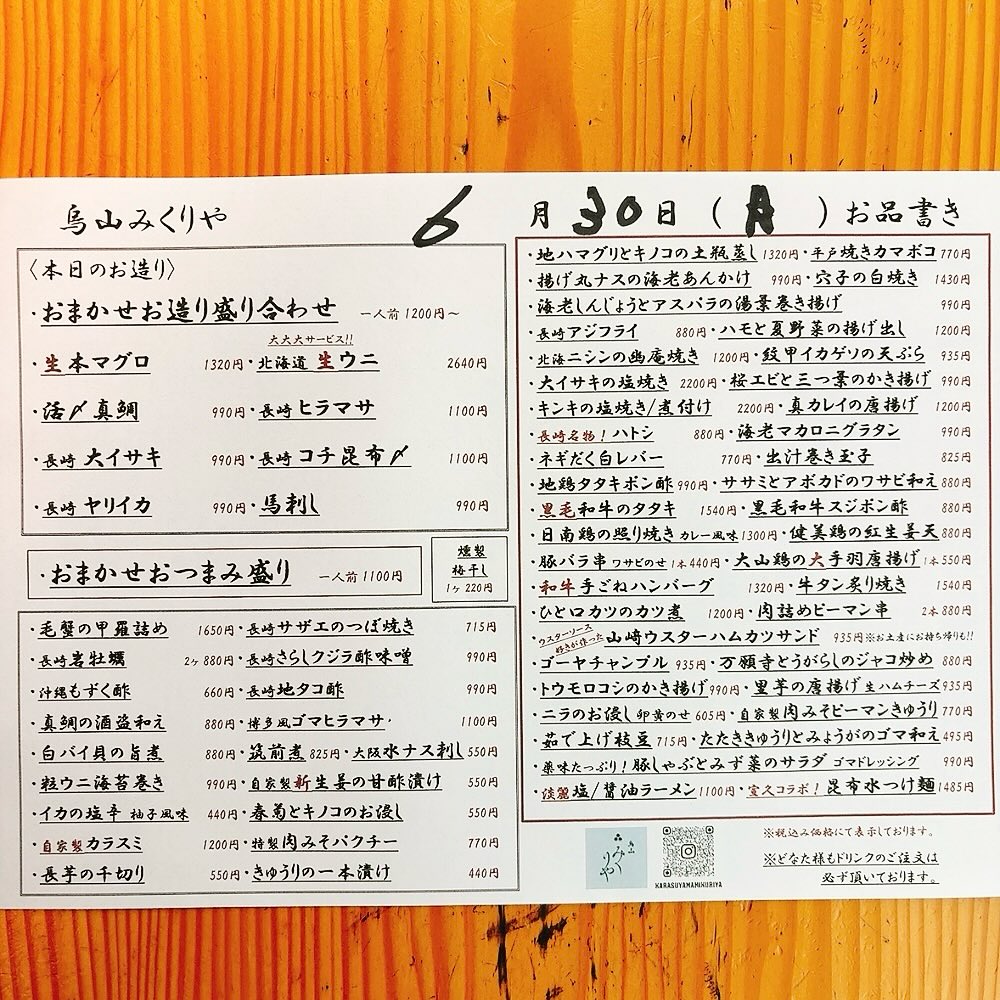 烏山みくりや 6月30日（月）お品書き
〈本日のお造り〉
・おまかせお造り盛り合わせ 一人前1200円〜
大大大サービス!!
・生本マグロ 1320円・北海道 生ウニ 2640円
・活〆真鯛 990円・長崎 ヒラマサ 1100円
・長崎 大イサキ 990円・長崎 コチ昆布〆 1100円
・長崎 ヤリイカ 990円・馬刺し 990円
・おまかせおつまみ盛り 一人前1100円
燻製
梅干し
1ヶ 220円
・毛蟹の甲羅詰め 1650円・長崎サザエのつぼ焼き 715円
・長崎岩牡蠣 2ヶ880円・長崎さらしクジラ酢味噌 990円
・沖縄もずく酢 660円・長崎地タコ酢 990円
・真鯛の酒盗和え 880円・博多風ゴマヒラマサ 1100円
・白バイ貝の旨煮 880円・筑前煮 825円・大阪水ナス刺し 550円
・粒ウニ海苔巻き 990円・自家製新生姜の甘酢漬け 550円
・イカの塩辛 柚子風味 440円・春菊とキノコのお浸し 550円
・自家製カラスミ 1200円・特製肉みそパクチー 770円
・長芋の千切り 550円・きゅうりの一本漬け 440円
・地ハマグリとキノコの土瓶蒸し 1320円・平戸焼きカマボコ 770円
・揚げ丸ナスの海老あんかけ 990円・穴子の白焼き 1430円
・海老しんじょうとアスパラの湯葉巻き揚げ 990円
・長崎アジフライ 880円・ハモと夏野菜の揚げ出し 1200円
・北海ニシンの幽庵焼き 1200円・紋甲イカゲソの天ぷら 935円
・大イサキの塩焼き 2200円・桜エビと三つ葉のかき揚げ 990円
・キンキの塩焼き/煮付け 2200円・真カレイの唐揚げ 1200円
・長崎名物！ハトシ 880円・海老マカロニグラタン 990円
・ネギだく白レバー 770円・出汁巻き玉子 825円
・地鶏タタキポン酢 990円・ササミとアボカドのワサビ和え 880円
・黒毛和牛のタタキ 1540円・黒毛和牛スジポン酢 880円
・日南鶏の照り焼き カレー風味 1300円・健美鶏の紅生姜天 880円
・豚バラ串 ワサビのせ 1本440円・大山鶏の大手羽唐揚げ 1本550円
・和牛手ごねハンバーグ 1320円・牛タン炙り焼き 1540円
・ひと口カツのカツ煮 1200円・肉詰めピーマン串 2本880円
・ウスターソース好きが作った 山崎ウスターハムカツサンド 935円※お土産にお持ち帰りも!!
・ゴーヤチャンプル 935円・万願寺とうがらしのジャコ炒め 880円
・トウモロコシのかき揚げ 990円・里芋の唐揚げ 生ハムチーズ 935円
・ニラのお浸し 卵黄のせ 605円・自家製肉みそピーマンきゅうり 770円
・茹で上げ枝豆 715円・たたききゅうりとみょうがのゴマ和え 495円
・薬味たっぷり！豚しゃぶとみず菜のサラダ ゴマドレッシング 990円
・淡麗 塩/醤油ラーメン 1100円・宣久コラボ！昆布水つけ麺 1485円
烏山
みくりや
KARASUYAMAMIKURIYA
※税込み価格にて表示しております。
※どなた様もドリンクのご注文は
必ず頂いております。